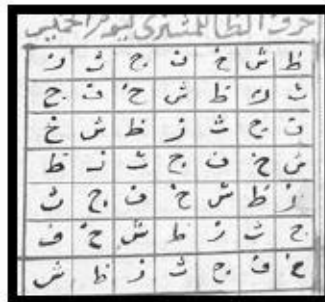 حرف الظا للمشتري ليوم الخميس
ظ ش خ ف ج ث ز
ث ز ظ ش خ ف ج
ف ج ث ز ظ ش خ
ش خ ف ج ث ز ظ
ز ظ ش خ ف ج ث
ج ث ز ظ ش خ ف
خ ف ج ث ز ظ ش